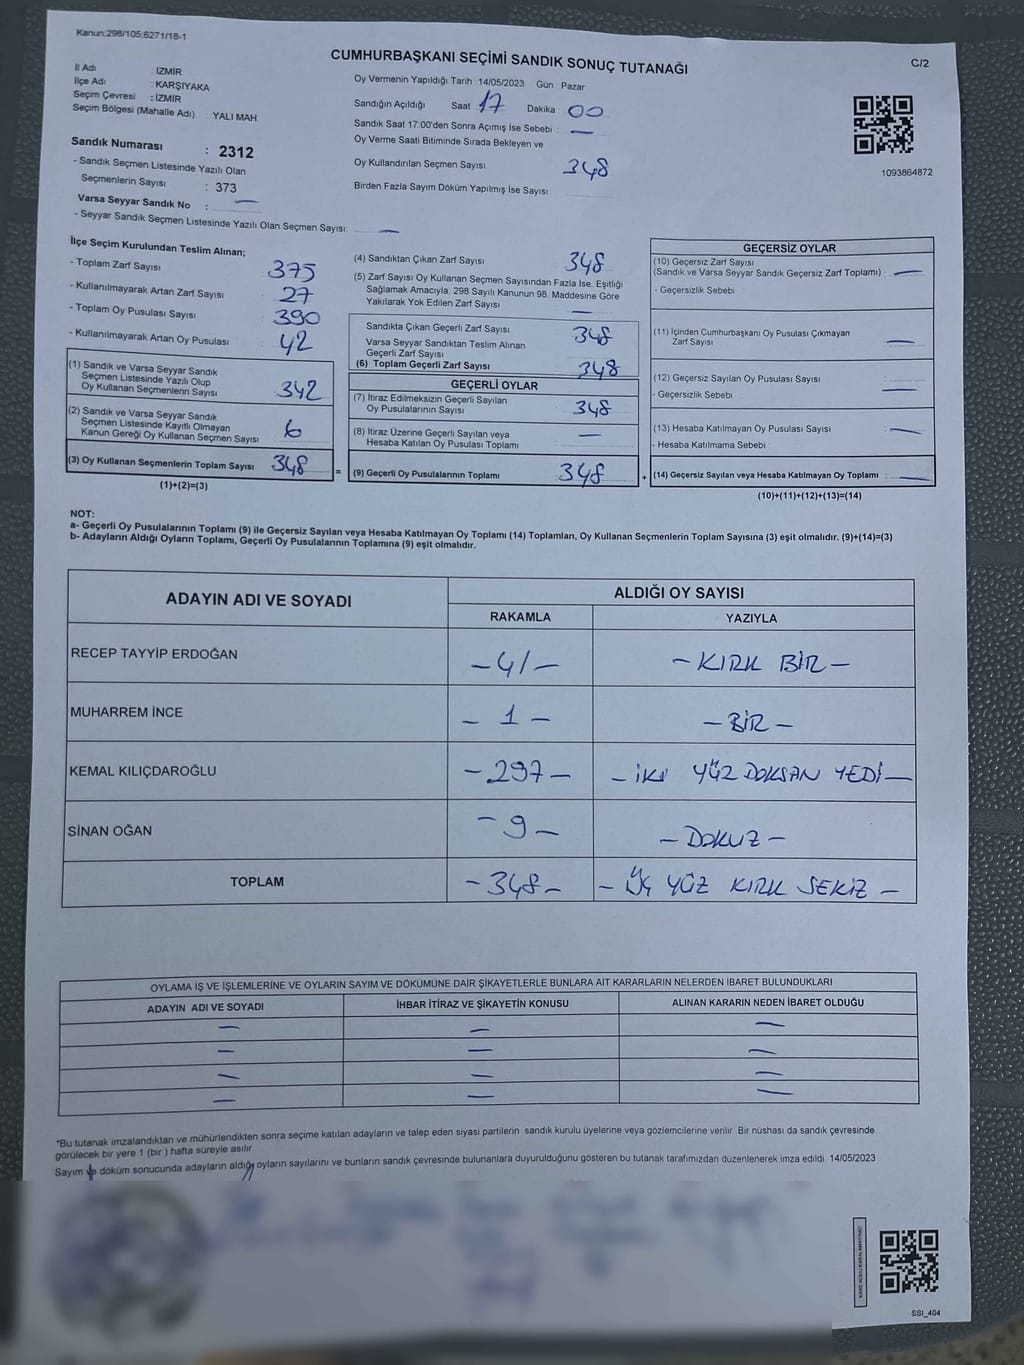 Kanun:298/105;6271/18-1
CUMHURBAŞKANI SEÇİMİ SANDIK SONUÇ TUTANAĞI
C/2
İl Adı : İZMİR
İlçe Adı : KARŞIYAKA
Seçim Çevresi : İZMİR
Seçim Bölgesi (Mahalle Adı) : YALI MAH.
Sandık Numarası : 2312
- Sandık Seçmen Listesinde Yazılı Olan
Seçmenlerin Sayısı : 373
Varsa Seyyar Sandık No : —
- Seyyar Sandık Seçmen Listesinde Yazılı Olan Seçmen Sayısı: —
Oy Vermenin Yapıldığı Tarih : 14/05/2023 Gün Pazar
Sandığın Açıldığı Saat 17 Dakika 00
Sandık Saat 17:00'den Sonra Açımış İse Sebebi : —
Oy Verme Saati Bitiminde Sırada Bekleyen ve
Oy Kullandırılan Seçmen Sayısı 348
Birden Fazla Sayım Döküm Yapılmış İse Sayısı
1093864872
İlçe Seçim Kurulundan Teslim Alınan;
- Toplam Zarf Sayısı 375
- Kullanılmayarak Artan Zarf Sayısı 27
- Toplam Oy Pusulası Sayısı 390
- Kullanılmayarak Artan Oy Pusulası 42
(1) Sandık ve Varsa Seyyar Sandık
Seçmen Listesinde Yazılı Olup
Oy Kullanan Seçmenlerin Sayısı 342
(2) Sandık ve Varsa Seyyar Sandık
Seçmen Listesinde Kayıtlı Olmayan
Kanun Gereği Oy Kullanan Seçmen Sayısı 6
(3) Oy Kullanan Seçmenlerin Toplam Sayısı 348
(1)+(2)=(3)
=
(4) Sandıktan Çıkan Zarf Sayısı 348
(5) Zarf Sayısı Oy Kullanan Seçmen Sayısından Fazla İse, Eşitliği
Sağlamak Amacıyla, 298 Sayılı Kanunun 98. Maddesine Göre
Yakılarak Yok Edilen Zarf Sayısı —
Sandıkta Çıkan Geçerli Zarf Sayısı 348
Varsa Seyyar Sandıktan Teslim Alınan
Geçerli Zarf Sayısı
(6) Toplam Geçerli Zarf Sayısı 348
GEÇERLİ OYLAR
(7) İtiraz Edilmeksizin Geçerli Sayılan
Oy Pusulalarının Sayısı 348
(8) İtiraz Üzerine Geçerli Sayılan veya
Hesaba Katılan Oy Pusulası Toplamı —
(9) Geçerli Oy Pusulalarının Toplamı 348
+
GEÇERSİZ OYLAR
(10) Geçersiz Zarf Sayısı
(Sandık ve Varsa Seyyar Sandık Geçersiz Zarf Toplamı) : —
- Geçersizlik Sebebi
(11) İçinden Cumhurbaşkanı Oy Pusulası Çıkmayan
Zarf Sayısı : —
(12) Geçersiz Sayılan Oy Pusulası Sayısı : —
- Geçersizlik Sebebi
(13) Hesaba Katılmayan Oy Pusulası Sayısı : —
- Hesaba Katılmama Sebebi
(14) Geçersiz Sayılan veya Hesaba Katılmayan Oy Toplamı : —
(10)+(11)+(12)+(13)=(14)
NOT:
a- Geçerli Oy Pusulalarının Toplamı (9) ile Geçersiz Sayılan veya Hesaba Katılmayan Oy Toplamı (14) Toplamları, Oy Kullanan Seçmenlerin Toplam Sayısına (3) eşit olmalıdır. (9)+(14)=(3)
b- Adayların Aldığı Oyların Toplamı, Geçerli Oy Pusulalarının Toplamına (9) eşit olmalıdır.
ADAYIN ADI VE SOYADI ALDIĞI OY SAYISI
RAKAMLA YAZIYLA
RECEP TAYYİP ERDOĞAN - 41 - - KIRK BİR -
MUHARREM İNCE - 1 - - BİR -
KEMAL KILIÇDAROĞLU - 297 - - İKİ YÜZ DOKSAN YEDİ -
SİNAN OĞAN - 9 - - DOKUZ -
TOPLAM - 348 - - ÜÇ YÜZ KIRK SEKİZ -
OYLAMA İŞ VE İŞLEMLERİNE VE OYLARIN SAYIM VE DÖKÜMÜNE DAİR ŞİKAYETLERLE BUNLARA AİT KARARLARIN NELERDEN İBARET BULUNDUKLARI
ADAYIN ADI VE SOYADI İHBAR İTİRAZ VE ŞİKAYETİN KONUSU ALINAN KARARIN NEDEN İBARET OLDUĞU
— — —
— — —
— — —
— — —
*Bu tutanak imzalandıktan ve mühürlendikten sonra seçime katılan adayların ve talep eden siyasi partilerin sandık kurulu üyelerine veya gözlemcilerine verilir. Bir nüshası da sandık çevresinde
görülecek bir yere 1 (bir ) hafta süreyle asılır.
Sayım ve döküm sonucunda adayların aldığı oyların sayılarını ve bunların sandık çevresinde bulunanlara duyurulduğunu gösteren bu tutanak tarafımızdan düzenlenerek imza edildi. 14/05/2023
KARE KODU KARALAMAYINIZ!
SSI_404